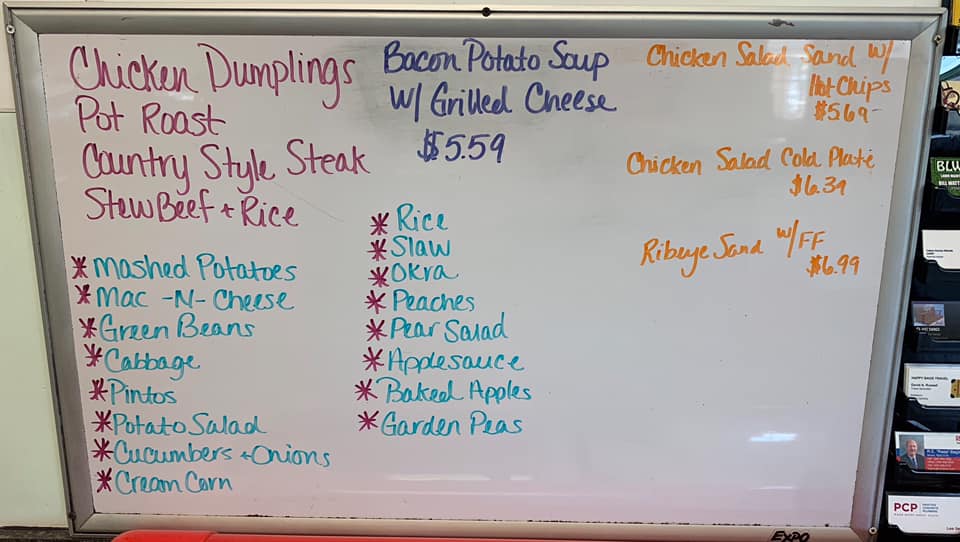 Chicken Dumplings
Pot Roast
Country Style Steak
Stew Beef + Rice
* Mashed Potatoes
* Mac -N- Cheese
* Green Beans
* Cabbage
* Pintos
* Potato Salad
* Cucumbers + Onions
* Cream Corn
Bacon Potato Soup
W/ Grilled Cheese
$5.59
* Rice
* Slaw
* Okra
* Peaches
* Pear Salad
* Applesauce
* Baked Apples
* Garden Peas
Chicken Salad Sand W/
Hot Chips
$5.69
Chicken Salad Cold Plate
$6.39
Ribeye Sand W/ FF
$6.99
EXPO
BLW
PCP